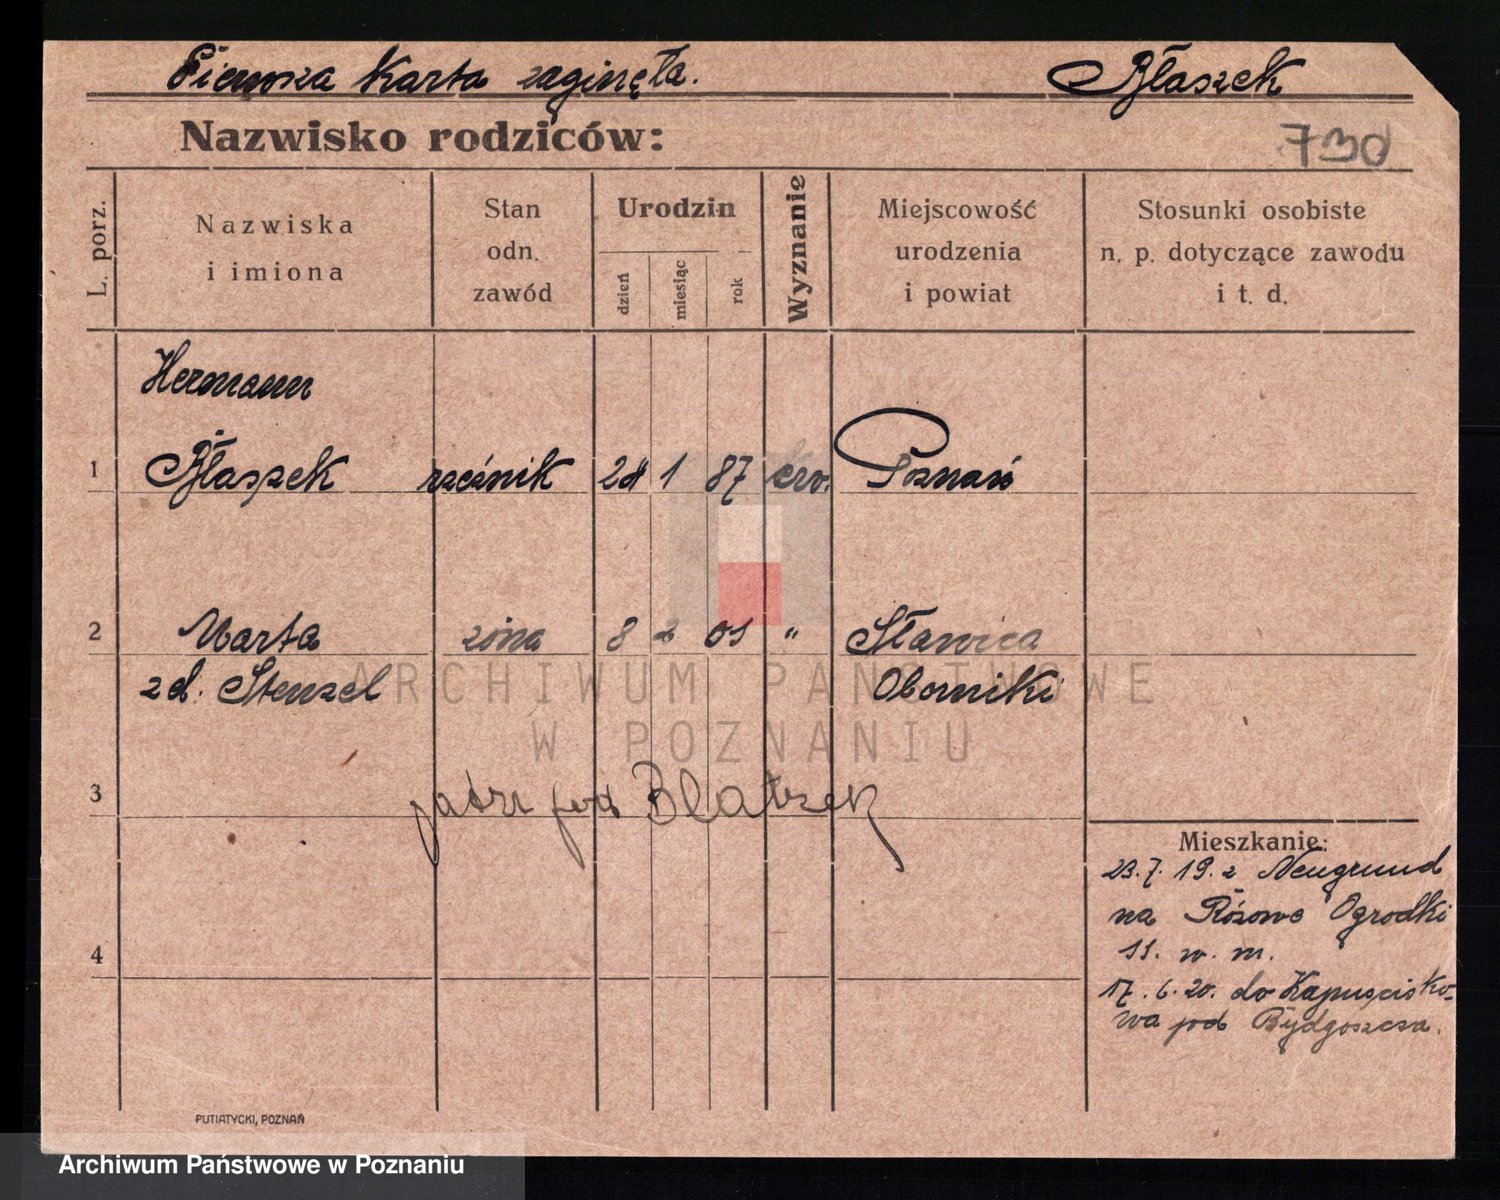 Pierwsza Karta zaginęła.
Błaszek
Nazwisko rodziców:
730
L. porz.
Nazwiska
i imiona
Stan
odn.
zawód
Urodzin
dzień
miesiąc
rok
Wyznanie
Miejscowość
urodzenia
i powiat
Stosunki osobiste
n. p. dotyczące zawodu
i t. d.
Hermann
1 Błaszek rzeźnik 28 1 87 Poznań
2 Marta żona 8 2 01 " Sławica
zd. Stenzel Oborniki
ARCHIWUM PAŃSTWOWE
W POZNANIU
3
Mieszkanie:
23.7.19. z Neugrund
na Różowe Ogrodki
11. w. m.
4
17.6.20. do Kapuścisko-
wa pod Bydgoszcza.
PUTIATYCKI, POZNAŃ
Archiwum Państwowe w Poznaniu